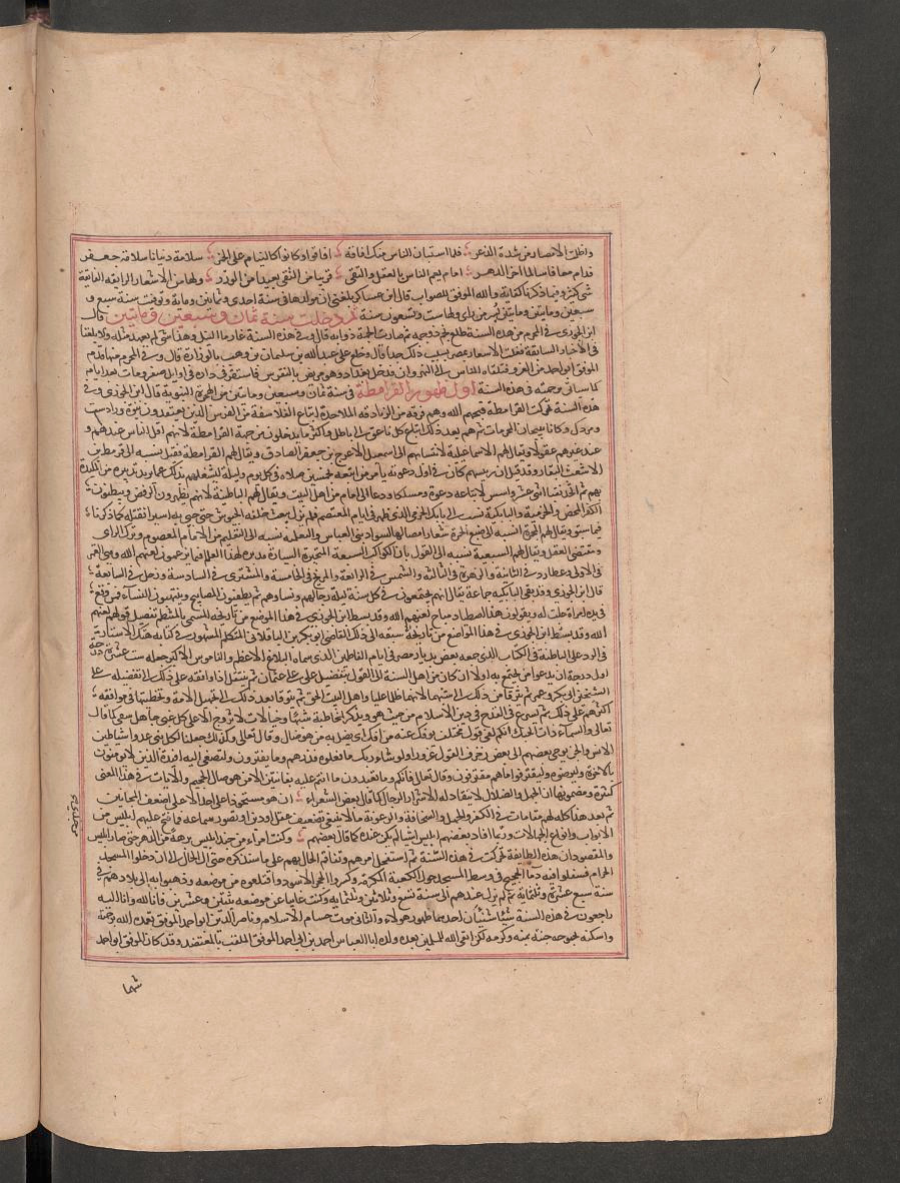 واظلت الابصار من شدة الذعر فلما استبان الناس منك افاقة افاقوا وكانوا كالنيام على الجمر سلامة دنيانا سلامة جعفر
فدام معافا سالما اخر الدهر امام يعم الناس بالعقل والتقى قريبا من التقى بعيدا من الوزر ولها من الاشعار الرايقة الفايقة
شي كثير وفيما ذكرنا كفاية والله الموفق للصواب قال ابن عساكر بلغني ان مولدها في سنة احدى وثمانين وماية وتوفت سنة سبع و
سبعين ومايتين بسر من راى ولها ست وتسعون سنة ثم دخلت سنة ثمان وسبعين ومايتين قال
ابن الجوزي في المحرم من هذه السنة طلع نجم ذو جمة ثم صارت الجمة ذوابة قال وفي هذه السنة غار ماء النيل وهذا شي لم يعهد مثله ولا بلغنا
في الاخبار السابقة فغلت الاسعار بمصر بسبب ذلك جدا قال وخلع على عبد الله بن سليمان بن وهب بالوزارة قال وفي المحرم منها قدم
الموفق ابو احمد من الغزو فتلقاه الناس الى النهروان فدخل بغداد وهو مريض بالنقرس فاستقر في داره في اوايل صفر ومات بعد ايام
كما سياتي وجمته في هذه السنة اول ظهور القرامطة في سنة ثمان وسبعين ومايتين من الهجرة النبوية قال ابن الجوزي وفي
هذه السنة تحركت القرامطة قبحهم الله وهم فرقة من الزنادقة الملاحدة اتباع الفلاسفة من الفرس الذين يعتقدون نبوة زرادشت
ومزدك وكانا يبيحان المحرمات ثم هم بعد ذلك اتباع كل ناعق الى باطل واكثر ما يدخلون من جهة الرافضة لانهم اقل الناس عندهم و
عند غيرهم عقولا ويقال لهم الاسماعيلية لانتسابهم الى اسمعيل الاعرج بن جعفر الصادق ويقال لهم القرامطة فقيل نسبة الى قرمط بن
الاشعث البقار وقد قيل ان رييسهم كان في اول دعوته يامر من اتبعه بخمسين صلاة في كل يوم وليلة ليشغلهم بذلك عما يريد تدبيره من المكيدة
بهم ثم اتخذ نقبا اثنى عشر واسس لاتباعه دعوة ومسلكا ودعا الى امام من اهل البيت ويقال لهم الباطنية لانهم يظهرون الرفض ويبطنون
الكفر المحض والخرمية والبابكية نسبة الى بابك الخرمي الذي ظهر في ايام المعتصم فلم يزل يبعث خلفه الجيوش حتى جي به اسيرا فقتله كما ذكرناه
فيما سبق ويقال لهم المحمرة نسبة الى صبغ الحمرة شعارا مضاهاة لسواد بني العباس والتعليمية نسبة الى التعليم من الامام المعصوم وترك الراى
ومقتضى العقل ويقال لهم السبعية نسبة الى القول بان الكواكب السبعة المتحيرة السيارة مدبرة لهذا العالم فيما يزعمون لعنهم الله وهي القمر
في الاولى وعطارد في الثانية والزهرة في الثالثة والشمس في الرابعة والمريخ في الخامسة والمشترى في السادسة وزحل في السابعة
قال ابن الجوزي وقد بقي من البابكية جماعة يقال انهم يجتمعون في كل سنة ليلة رجالهم ونساوهم ثم يطفئون المصابيح وينتهبون النساء فمن وقع
في يده امراة حلت له ويقولون هذا اصطياد مباح لعنهم الله وقد بسط ابن الجوزي في هذا الموضع من تاريخه المسمى بالمنتظم تفصيل قولهم لعنهم
الله وقد بسط ابن الجوزي في هذا الموضع من تاريخه سبقه الى ذلك القاضي ابو بكر بن الباقلاني المتكلم المشهور في كتابه هتك الاستار
في الرد على الباطنية في الكتاب الذي جمعه بعض بديار مصر في ايام الفاطمين الذي سماه البلاغ الاعظم والناموس الاكبر جعله ست عشرة درجة
اول درجة ان يدعوا من يجتمع به اولا ان كان من اهل السنة الى القول بتفضيل علي على عثمان ثم ينتقل اذا وافقه على ذلك الى تفضيله على
الشيخين ابي بكر وعمر ثم يترقا من ذلك الى سبهما لانهما ظلما عليا واهل البيت الحق ثم يترقا بعد ذلك الى تجهيل الامة وتخطيتها في موافقة
اكثرهم على ذلك ثم يسرع في القدح في دين الاسلام من حيث هو ويذكر لمخاطبه شبها وخيالات لا تروج الا على كل غبي جاهل شقي كما قال
تعالى والسماء ذات الحبك انكم لفي قول مختلف يوفك عنه من افك اى يضل به من هو ضال وقال تعالى وكذلك جعلنا لكل نبي عدوا شياطين
الانس والجن يوحي بعضهم الى بعض زخرف القول غرورا ولو شا ربك ما فعلوه فذرهم وما يفترون ولتصغى اليه افيدة الذين لا يومنون
بالاخرة وليرضوه وليقترفوا ما هم مقترفون وقال تعالى فانكم وما تعبدون ما انتم عليه بفاتنين الا من هو صال الجحيم والايات في هذا المعنى
كثيرة ومضمونها ان الجهل والضلال لا ينقاد له الا شرار الرجال كما قال بعض الشعراء ان هو مستحوذا على احد الا على اضعف المجانين
ثم بعد هذا كله لهم مقامات في الكفر والجهل والسخافة والرعونة ما لا ينبغي لضعيف عقل او دين او تصور سماعه مما فتح عليهم ابليس من
الابواب وانواع الجهالات وربما افاد بعضهم ابليس اشيا لم يكن عنده كما قال بعضهم وكنت امراء من جند ابليس برهة من الدهر حتى صار ابليس
والمقصود ان هذه الطايفة تحركت في هذه السنة ثم استفحل امرهم وتفاقم الحال بهم على ما سنذكره حتى ال الحال الى ان دخلوا المسجد
الحرام فسفكوا فيه دماء الحجيج في وسط المسجد حول الكعبة المكرمة وكسروا الحجر الاسود واقتلعوه من موضعه وذهبوا به الى بلادهم في
سنة سبع عشرة وثلثماية ثم لم يزل عندهم الى سنة تسع وثلاثين وثلثماية فمكث غايبا عن موضعه ثنتين وعشرين فانا لله وانا اليه
راجعون في هذه السنة شيئان احدهما ظهور هولاء والثاني موت حسام الاسلام وناصر الدين ابو احمد الموفق تغمده الله برحمته
واسكنه بحبوحة جنته بمنه وكرمه لكن ابقى الله للمسلمين بعده ولده ابا العباس احمد بن ابي احمد الموفق الملقب بالمعتضد وقد كان الموفق ابو احمد
شهما